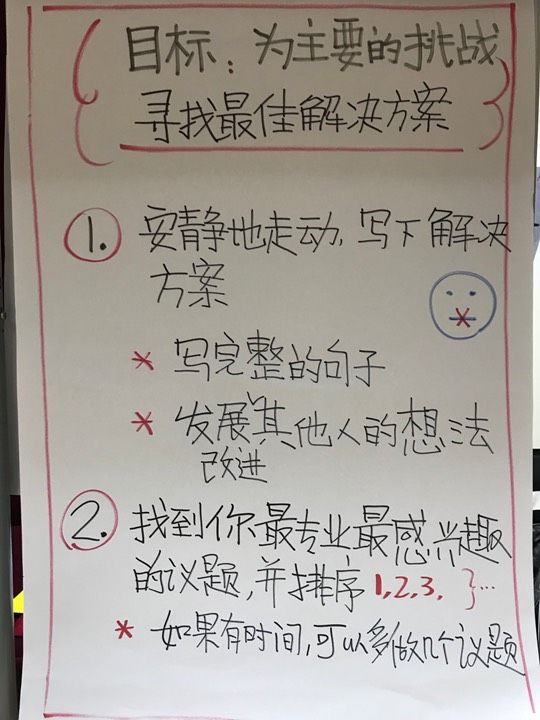 目标：为主要的挑战
寻找最佳解决方案
1. 安静地走动，写下解决
方案
* 写完整的句子
* 发展、其他人的想法
改进
2. 找到你最专业最感兴趣
的议题，并排序 1,2,3. }...
* 如果有时间，可以多做几个议题